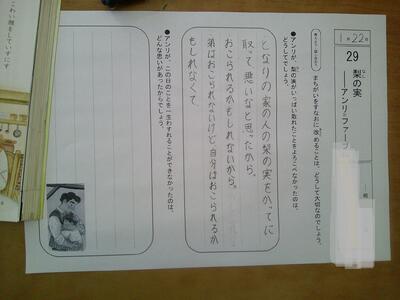 1月22日
29 梨の実
――アンリ=ファーブ
まちがいをすなおに改めることは、どうして大切なのでしょう。
●アンリが、梨の実がいっぱい取れたことをよろこべなかったのは、
どうしてでしょう。
となりの家の人の梨の実をかってに
取って悪いなと思ったから。
おこられるかもしれないから。
弟はおこられないけど自分はおこられるか
もしれなくて
●アンリが、この日のことを一生わすれることができなかったのは、
どんな思いがあったからでしょう。
こわい顔をしていずにす